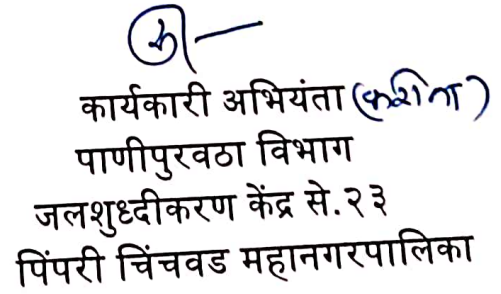 कार्यकारी अभियंता
पाणीपुरवठा विभाग
जलशुध्दीकरण केंद्र से.२३
पिंपरी चिंचवड महानगरपालिका